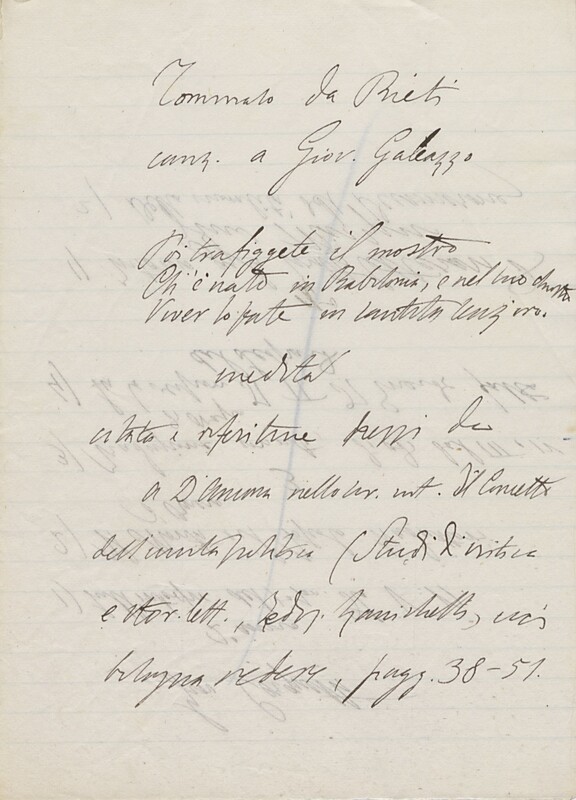 Tommaso da Rieti
canz. a Giov. Galeazzo
Poi trafiggete il mostro
Ch'è nato in Babilonia, e nel suo chiostro
Viver lo fate in santità
inedita
citata e riferitine pezzi da
A D'Ancona nello scr. int. Il Concetto
dell'unità politica (Studi di critica
e stor. lett., Zanichelli,
bologna vedere, pagg. 38-51.